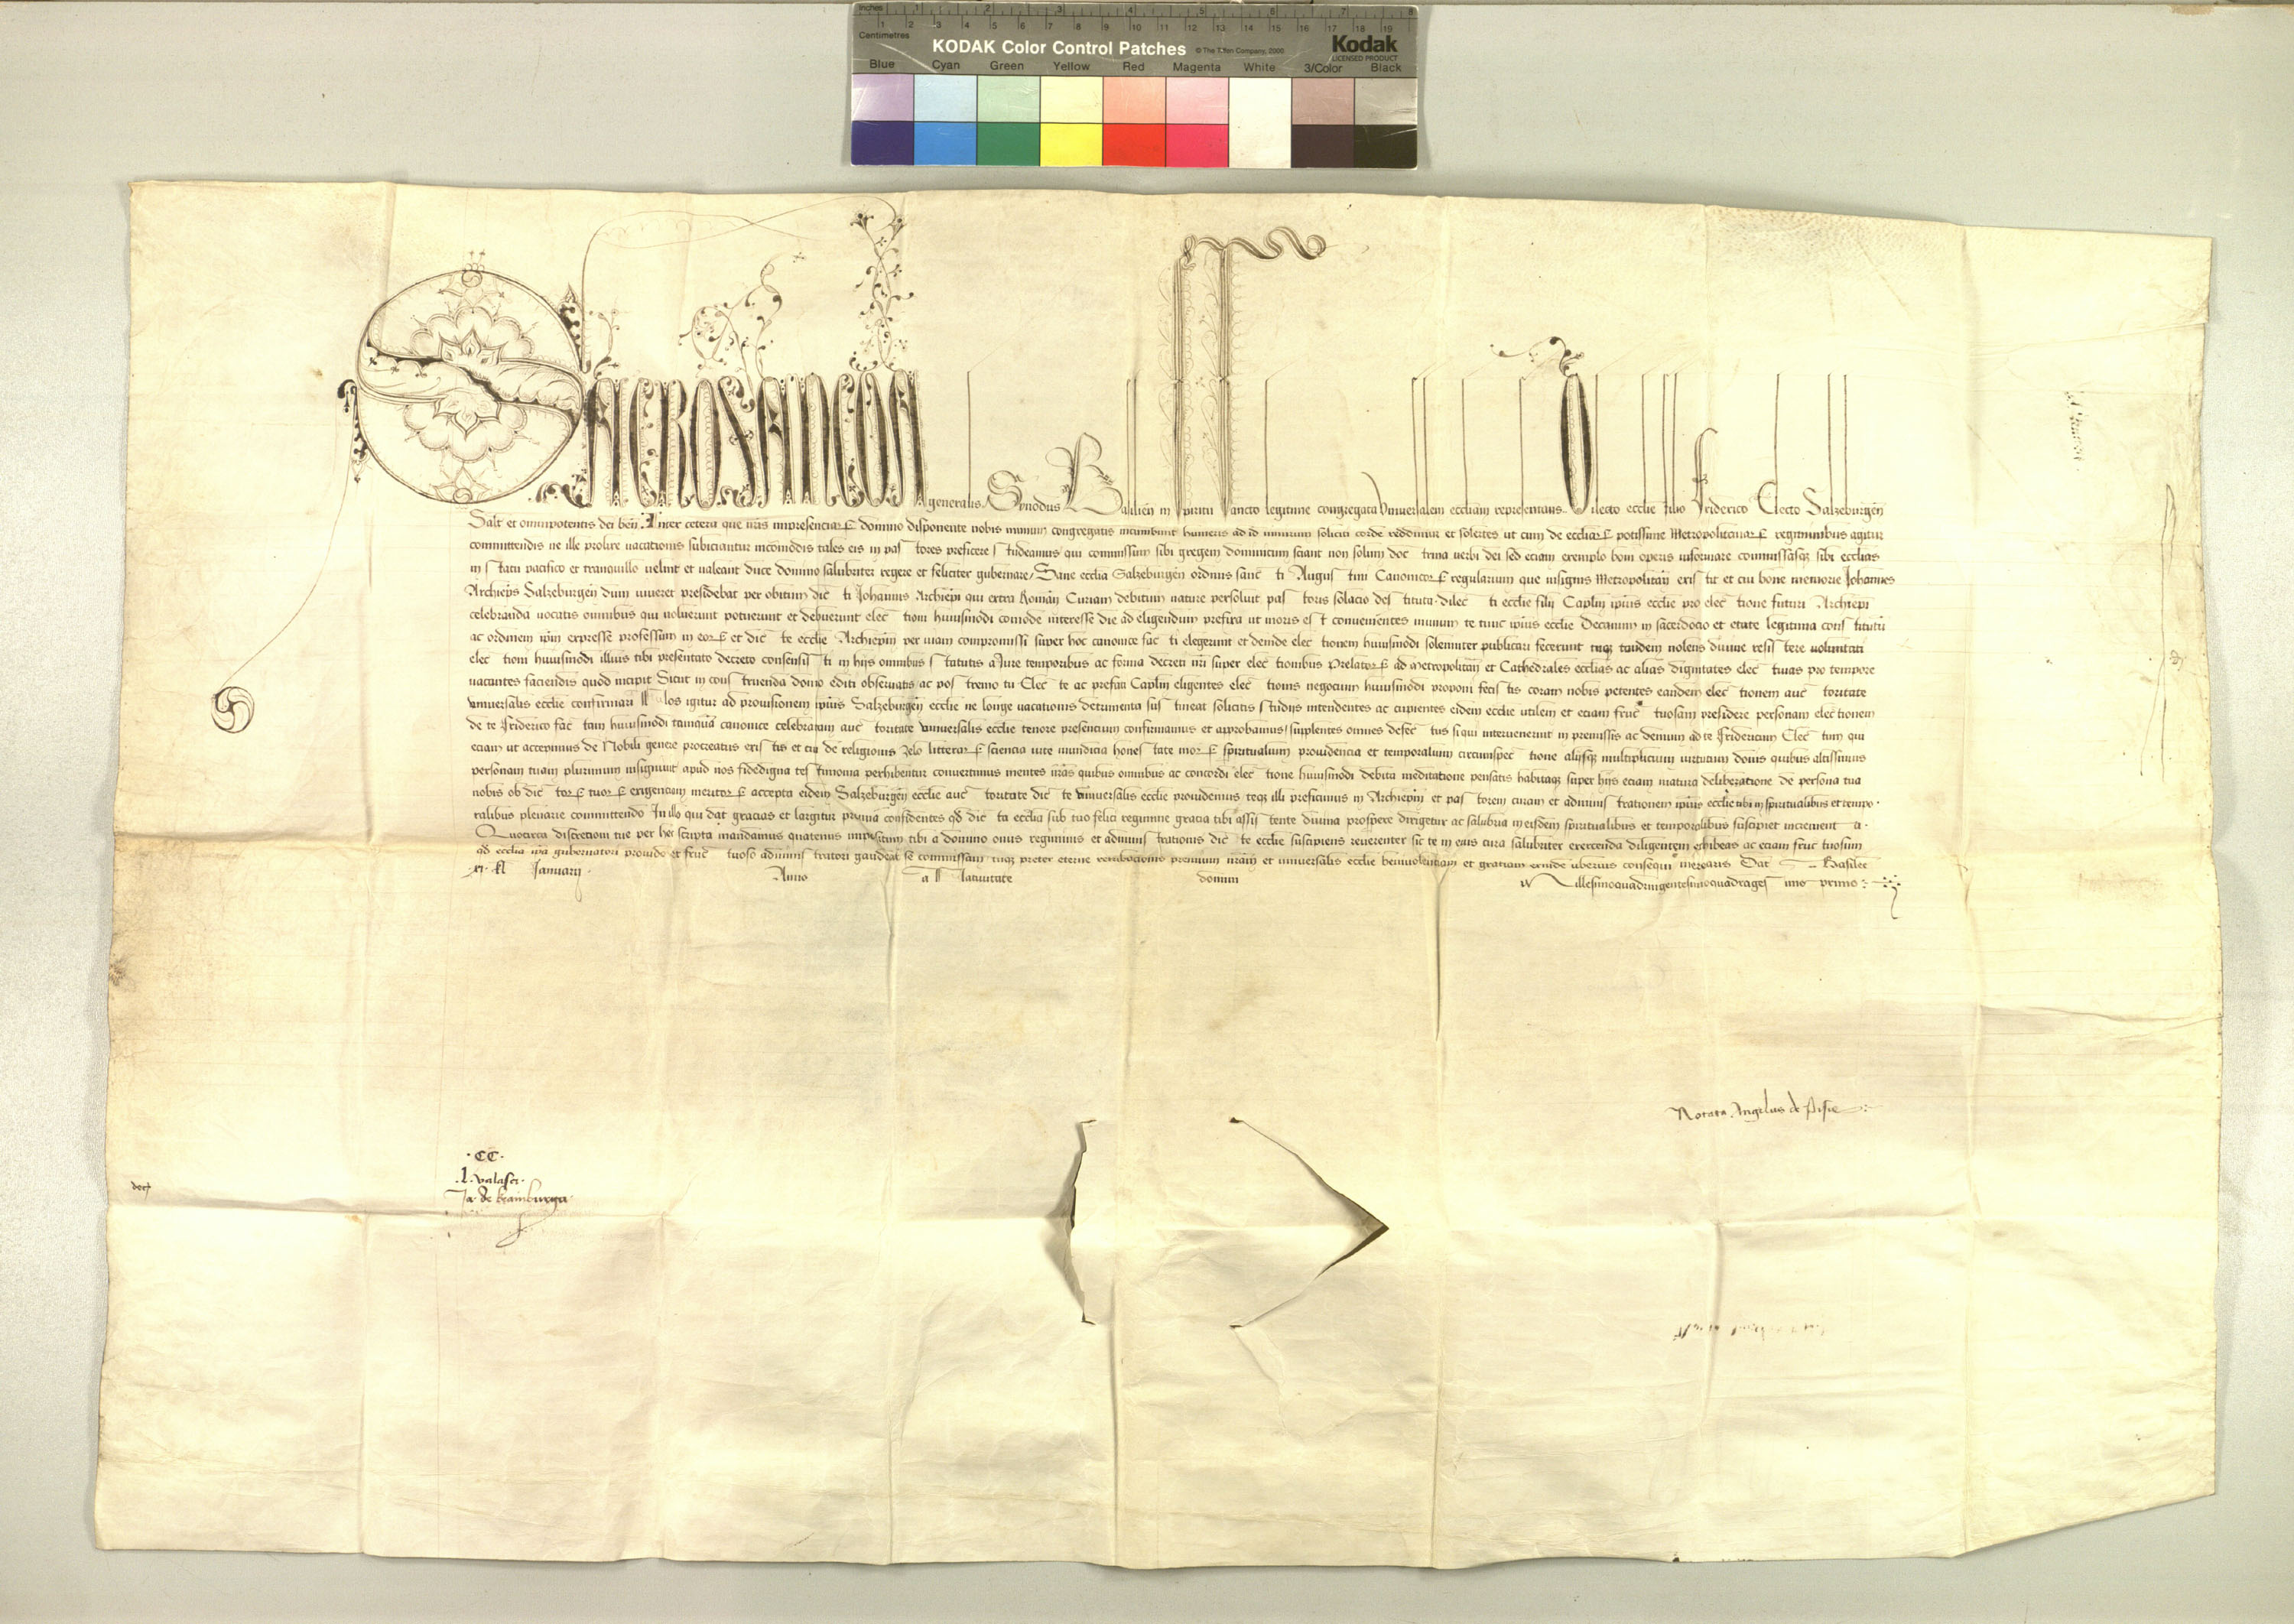 Inches 1 2 3 4 5 6 7 8
Centimetres 1 2 3 4 5 6 7 8 9 10 11 12 13 14 15 16 17 18 19
KODAK Color Control Patches © The Tiffen Company, 2000 Kodak
LICENSED PRODUCT
Blue Cyan Green Yellow Red Magenta White 3/Color Black
SACROSANCTA generalis Synodus Basilien in Spiritu Sancto legitime congregata Universalem eccliam representans Dilecto ecclie filio Friderico Electo Salzeburgen
Salt et omnipotentis dei ben Inter cetera que nris domino disponente nobis congregatis incumbunt humeris ad id nimirum soliciti corde reddimur et solertes ut cum de eccliar potissime Metropolitanar regiminibus agitur
committendis ne ille prolixe vacationis subiciantur incomodis tales eis in pastores preficere studeamus qui commissum sibi gregem dominicum sciant non solum doctrina verbi dei sed eciam exemplo boni operis informare commissasq sibi ecclias
in statu pacifico et tranquillo velint et valeant duce domino salubriter regere et feliciter gubernare Sane ecclia Salzeburgen ordinis sancti Augustini Canonicor regularium que insignis Metropolitan existit et cui bone memorie Johannes
Archieps Salzeburgen dum viveret presidebat per obitum dicti Johannis Archiepi qui extra Roman Curiam debitum nature persolvit pastoris solacio destituta dilecti ecclie filij Caplm ipius ecclie pro electione futuri Archiepi
celebranda vocatis omnibus qui voluerunt potuerunt et debuerunt electioni huiusmodi comode interesse die ad eligendum prefixa ut moris est convenientes te tunc ipius ecclie Decanum in sacerdocio et etate legitima constitutu
ac ordinem ipm expresse professum in eor et dicte ecclie Archiepm per viam compromissi super hoc canonice facti elegerunt et deinde electionem huiusmodi solemniter publicari fecerunt tuq tandem nolens divine resistere voluntati
electioni huiusmodi illius tibi presentato decreto consensisti in hijs omnibus statutis a Jure temporibus ac forma decreti nri super electionibus Prelator ad Metropolitan et Cathedrales ecclias ac alias dignitates electivas pro tempore
vacantes faciendis quod incipit Sicut in construenda domo editi observatis ac postremo tu Electe ac prefati Caplm eligentes electionis negocium huiusmodi proponi fecistis coram nobis petentes eandem electionem auctoritate
universalis ecclie confirmari Nos igitur ad provisionem ipius Salzeburgen ecclie ne longe vacationis detrimenta sustineat solicitis studijs intendentes ac cupientes eidem ecclie utilem et eciam fructuosam presidere personam electionem
de te Friderico factam huiusmodi tamqua canonice celebratam auctoritate universalis ecclie tenore presencium confirmamus et approbamus supplentes omnes defectus si qui intervenerint in premissis ac demum ad te Fridericum Electum qui
eciam ut accepimus de Nobili genere procreatus existis et cui de religionis zelo litterar sciencia vite mundicia honestate mor spiritualium providencia et temporalium circumspectione alijsq multiplicium virtutum donis quibus altissimus
personam tuam plurimum insignivit apud nos fidedigna testimonia perhibentur convertimus mentes nras quibus omnibus ac concordi electione huiusmodi debita meditatione pensatis habitaq super hijs eciam matura deliberatione de persona tua
nobis ob dictor tuor exigenciam meritor accepta eidem Salzeburgen ecclie auctoritate dicte universalis ecclie providemus teq illi preficimus in Archiepm et pastorem curam et administrationem ipius ecclie tibi in spiritualibus et tempo
ralibus plenarie committendo In illo qui dat gracias et largitur premia confidentes qd dicta ecclia sub tuo felici regimine gracia tibi assistente divina prospere dirigetur ac salubria in eisdem spiritualibus et temporalibus suscipiet incrementa
Quocirca discretioni tue per hec scripta mandamus quatenus impositum tibi a domino onus regiminis et administrationis dicte ecclie suscipiens reverenter sic te in eius cura salubriter exercenda diligentem exhibeas ac eciam fructuosum
qd ecclia ipa gubernatori provido et fructuoso administratori gaudeat se commissam tuq preter eterne retributionis premium nram et universalis ecclie benivolenciam et gratiam exinde uberius consequi merearis Dat Basilee
xj kl Januarij Anno a Nativitate domini Millesimoquadringentesimoquadragesimo primo
Notata Angelus de Pisie
CC
l. valasci
Ja. de hamburga